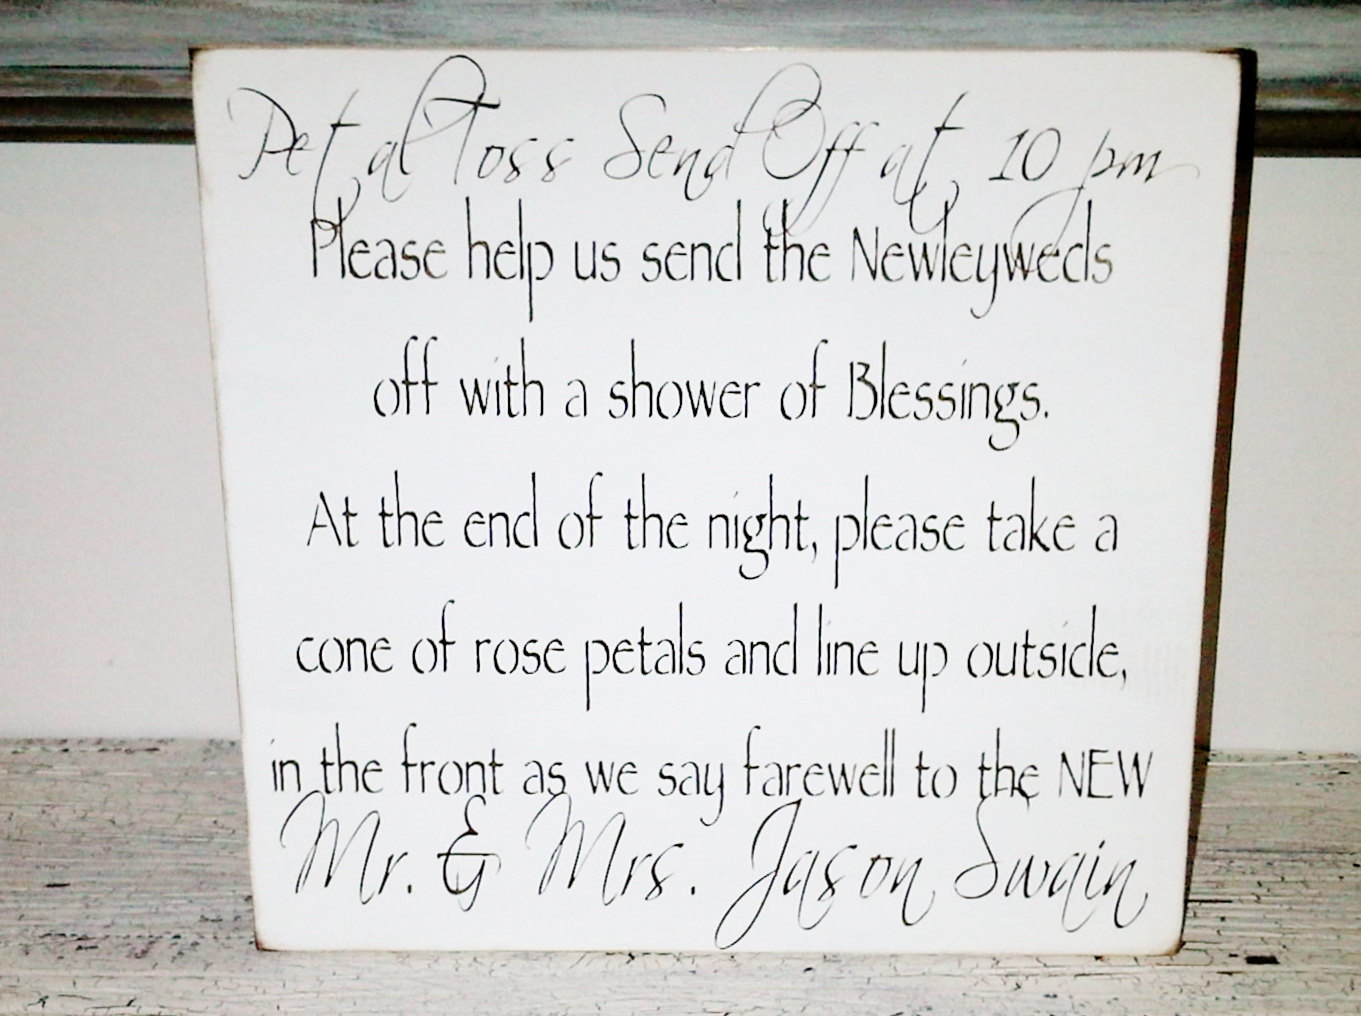 Petal Toss Send Off at 10 pm
Please help us send the Newleyweds
off with a shower of Blessings.
At the end of the night, please take a
cone of rose petals and line up outside,
in the front as we say farewell to the NEW
Mr. & Mrs. Jason Swain